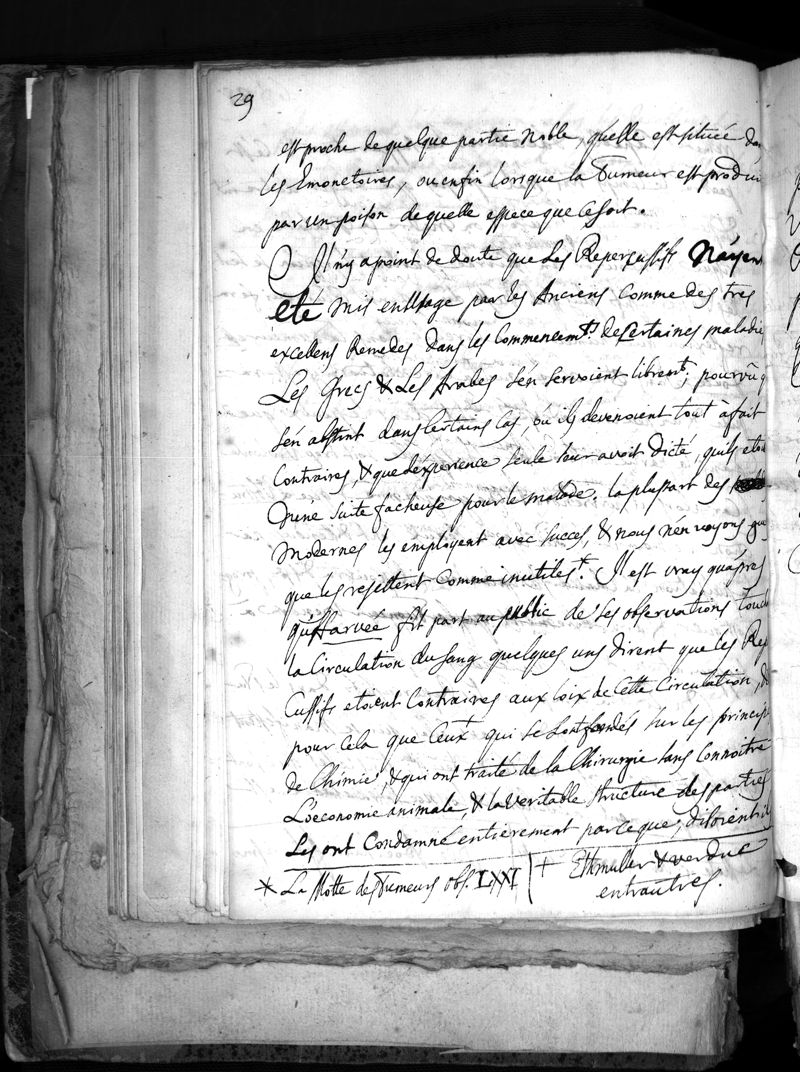 29
est proche de quelque partie Noble, qu'elle est située da
les Emonctoires, ou enfin lorsque la Tumeur est produi
par un poison de quelle espece que ce soit.
Il n'y a point de doute que Les Repercussifs N'ayent
eté mis en Usage par les Anciens Comme des tres
excellens Remedes dans les Commencemts. de Certaines maladie
Les Grecs & Les Arabes s'en servoient libremt; pourvû q
s'en abstint dans Certains Cas, ou ils devenoient tout à fait
Contraires, & que l'éxperience seule leur avoit dicté, quils etoi
d'une suite facheuse pour le malade. la pluspart des
modernes les employent avec succes, & nous n'en voyons gu
que les rejettent Comme inutiles. Il est vray qu'apres
qu'Harveé fit part au public de Ses observations touch
la Circulation du Sang quelques uns dirent que les Rep
Cussifs etoient Contraires aux loix de Cette Circulation, &
pour Cela que Ceux qui se sont fondés sur les princip
de Chimie, & qui ont traité de la Chirurgie sans Connoitre
L'oeconomie animale, & la veritable structure des parties
Les ont Condamné entierement parce que, disoient ils
* La Motte des Tumeurs obs. LXXI
+ Ethmuller & verduc
entrautres.